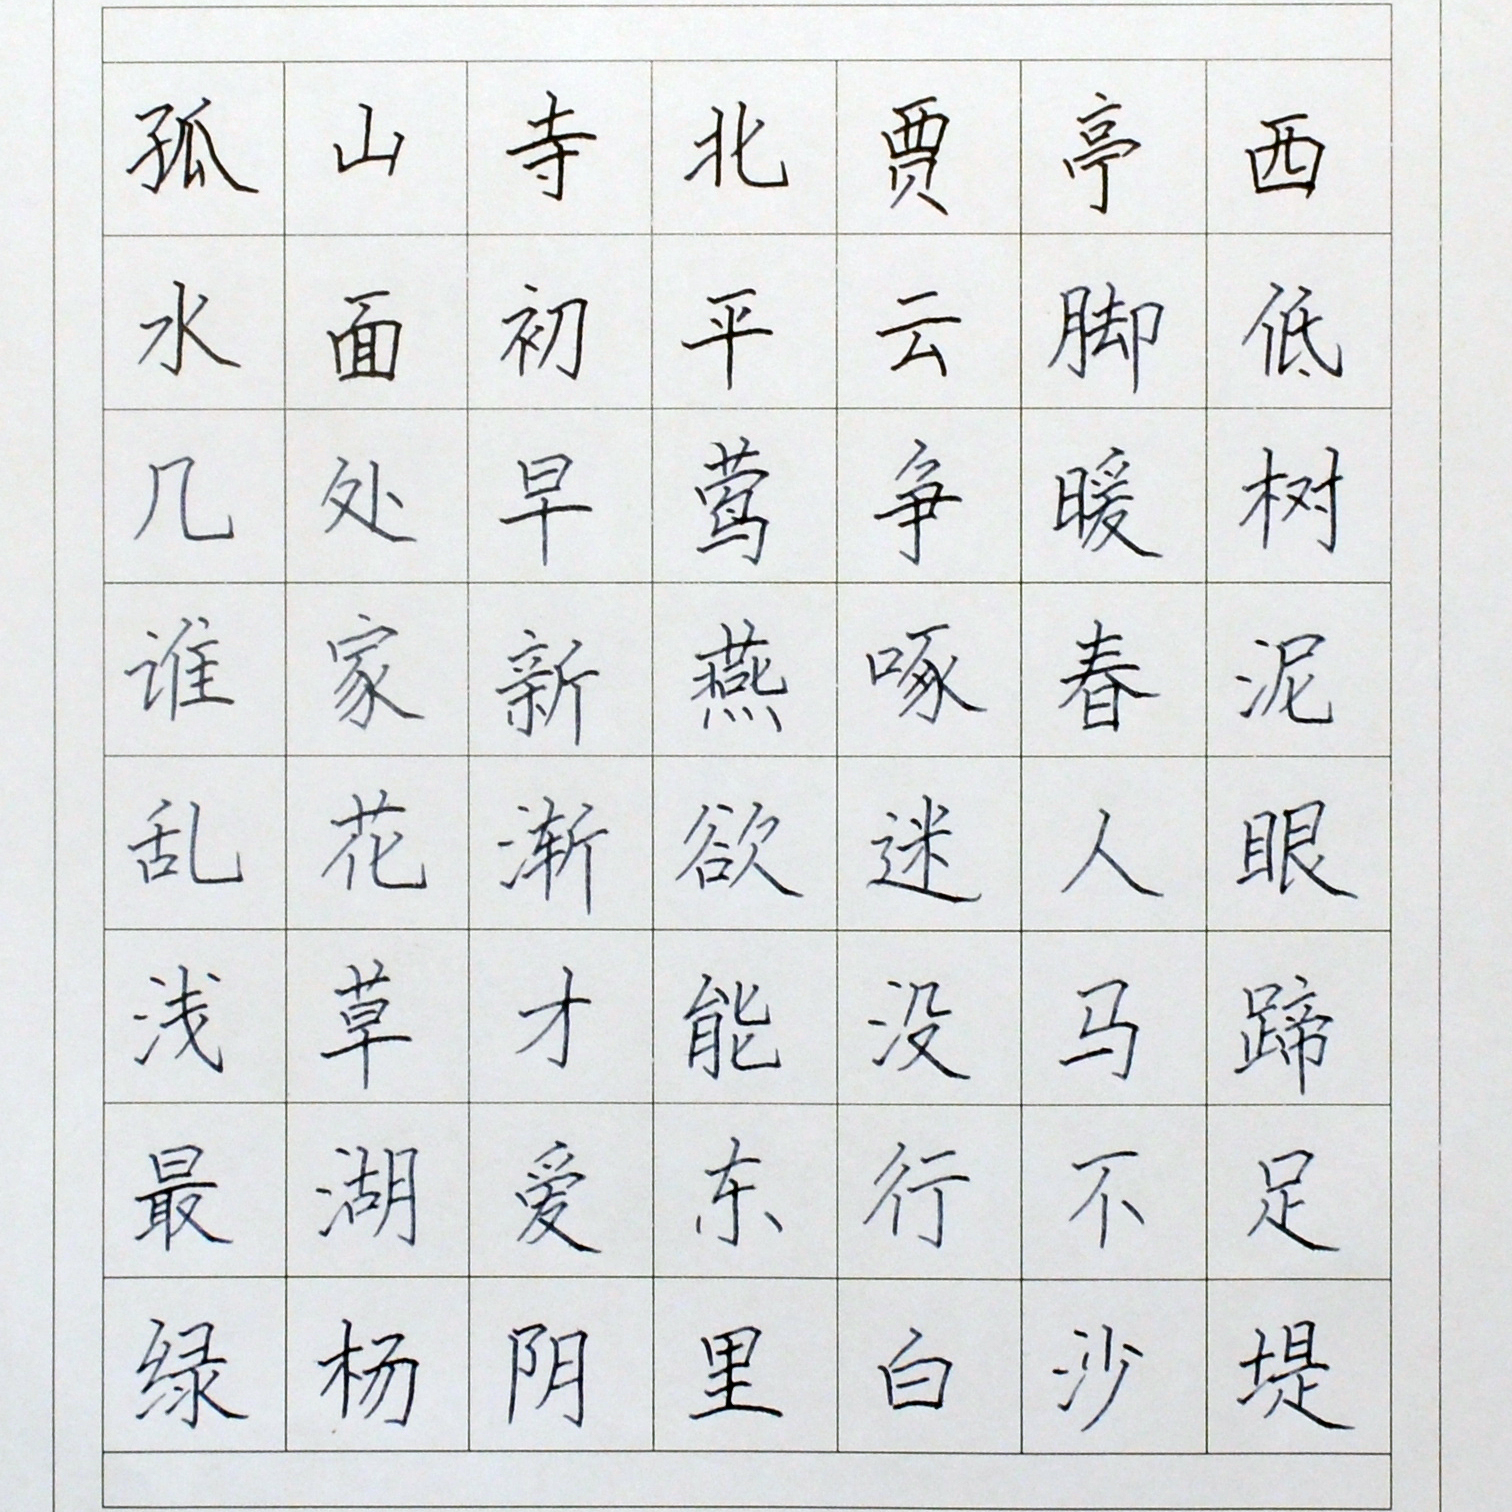 孤山寺北贾亭西
水面初平云脚低
几处早莺争暖树
谁家新燕啄春泥
乱花渐欲迷人眼
浅草才能没马蹄
最湖爱东行不足
绿杨阴里白沙堤